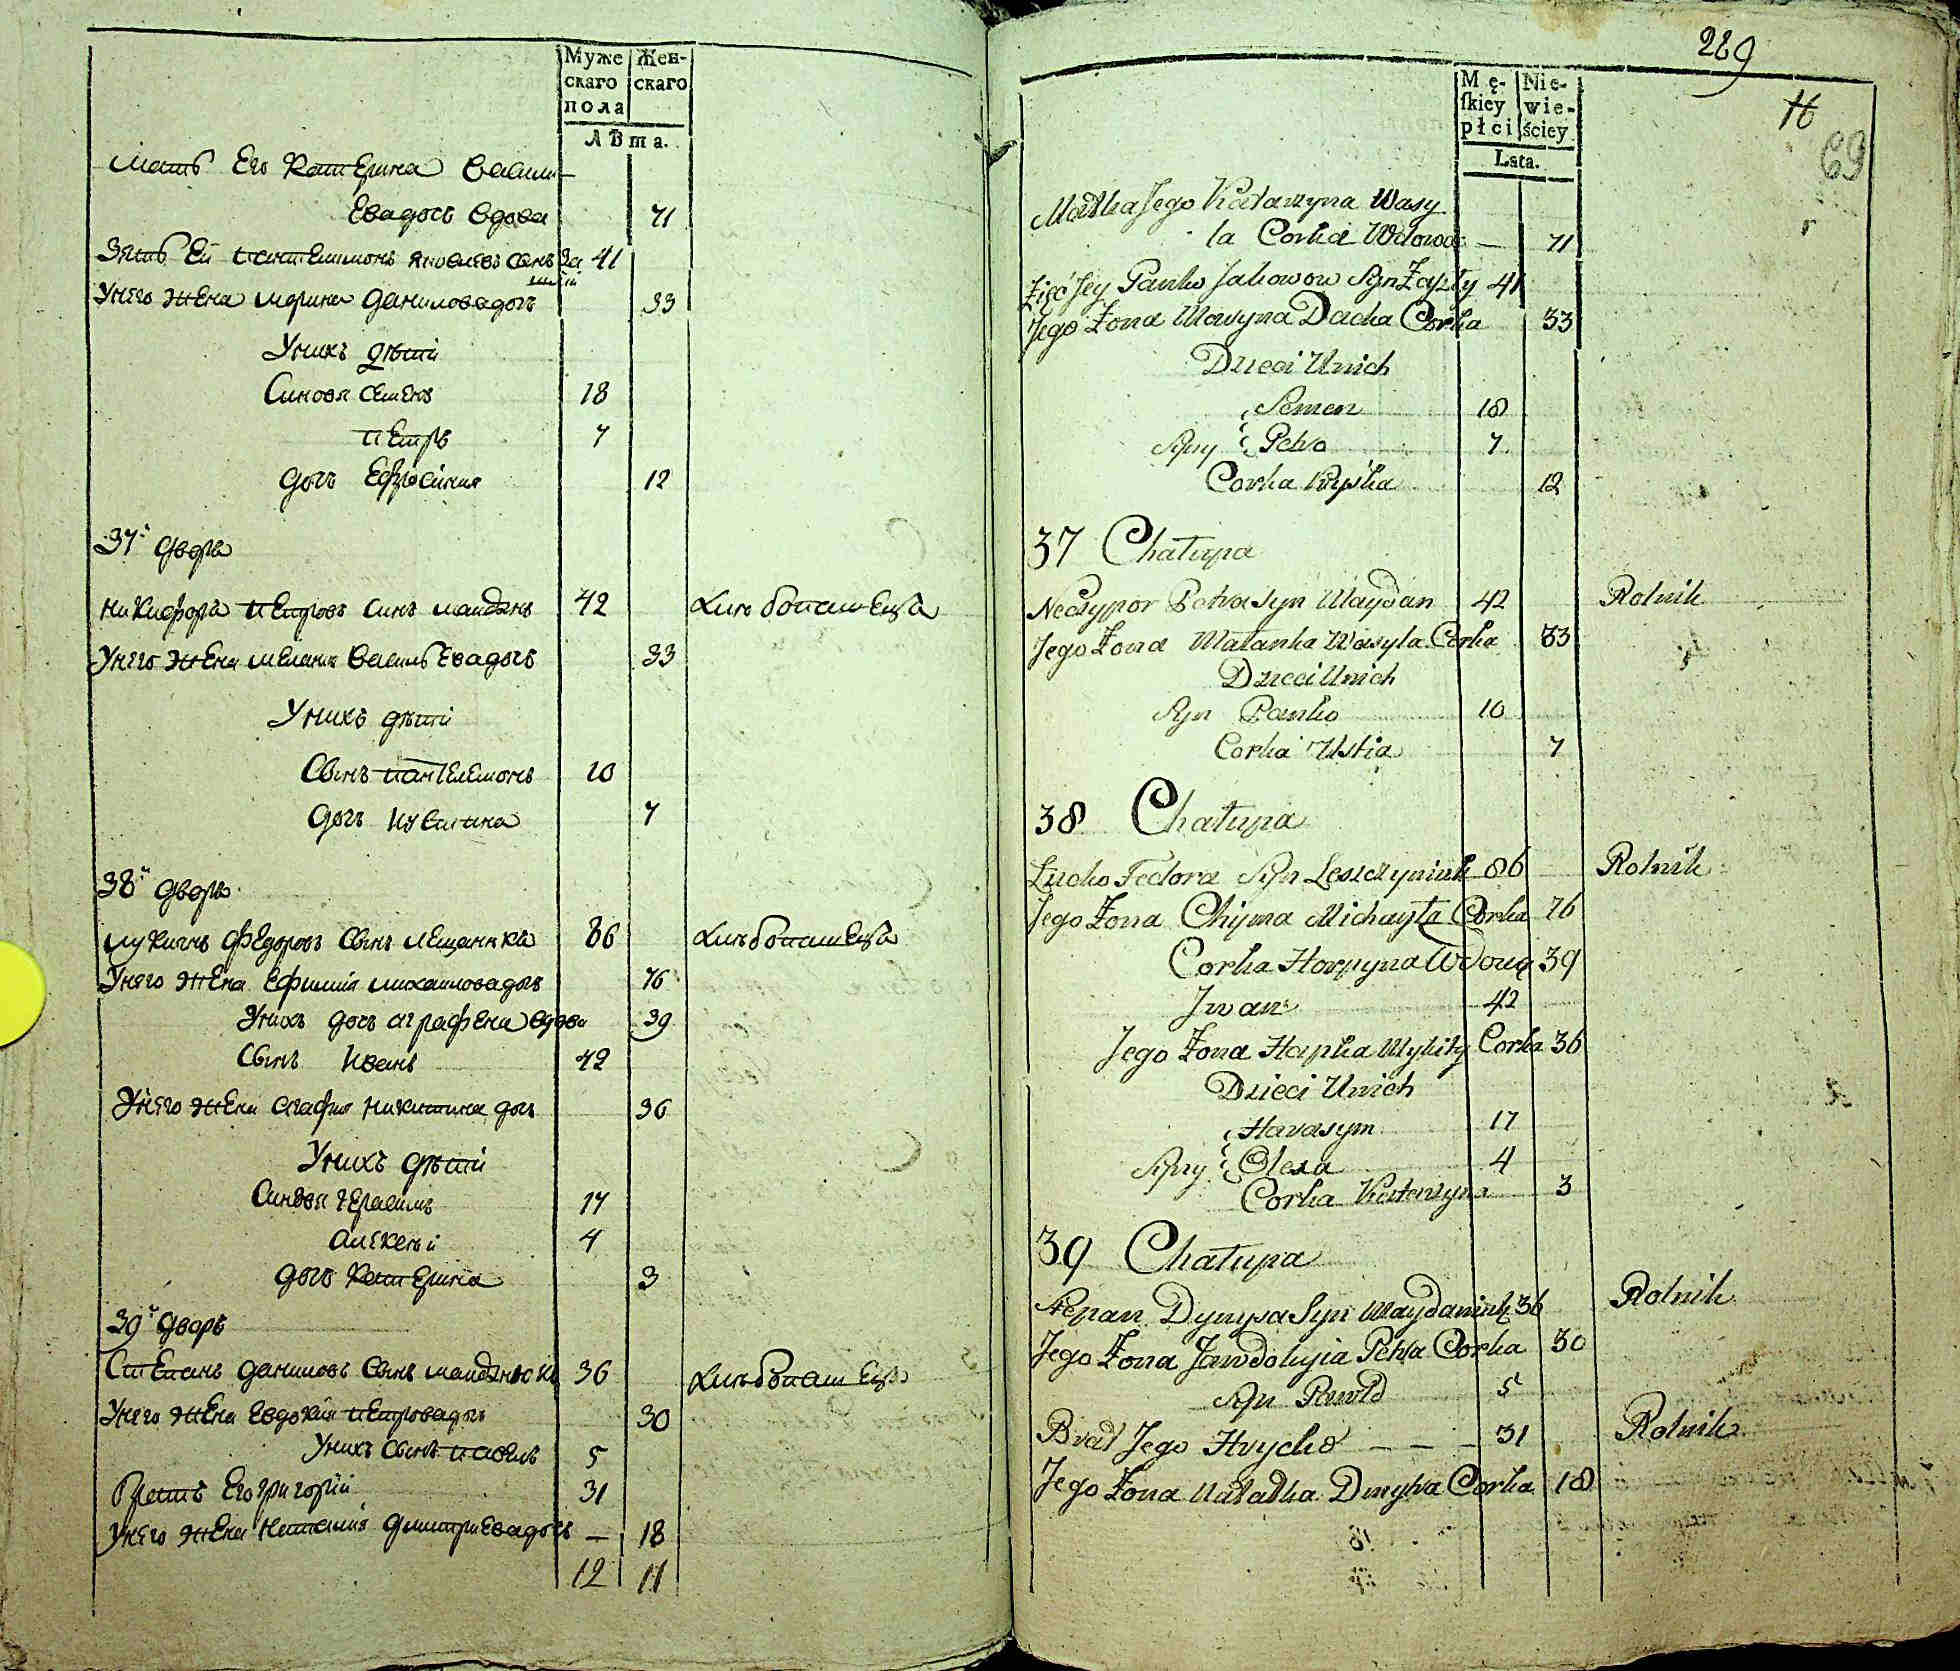 Муже
скаго
пола
Жен-
скаго
Лѣта.
Мать Его Катерина Васили
Евадочь вдова 71
Зять Ей Пантелимонъ Яковлевъ сынъ 41
Унего жена Марина Даниловадочь 33
Унихъ дѣти
Синовя Семенъ 18
Петръ 7
дочь Ефросиния 12
37й дворъ
Никифоръ Петровъ синъ Маиданъ 42 Хлибопашецъ
Унего жена Мелания ВасильЕвадочь 33
Унихъ дѣти
Сынъ Пантелемонъ 10
дочь Иустина 7
38й дворъ
Лукиянъ Федоровъ Сынъ 86 Хлибопашецъ
Унего жена Ефимия Михаиловадочь 76
Унихъ дочь Аграфена вдова 39
Сынъ Иванъ 42
Унего жена Агафия Никитина дочь 36
Унихъ дѣти
Синовя Герасимъ 17
Алексей 4
дочь Катерина 3
39й дворъ
Степанъ Даниловъ Сынъ 36 Хлибопашецъ
Унего жена Евдокия Петровадочь 30
Унихъ Сынъ Павелъ 5
Братъ Его Григорий 31
Унего жена Наталия ДмитриЕвадочь — 18
12 11
289
69
Mę-
ſkiey
płci
Nie-
wie-
ściey
Lata.
Matka Jego Katarzyna Wasy
la Corka Wdowa — 71
Zięć Jey Panko Jakowow Syn 41
Jego Zona Maryna Dacka Corka 33
Dzieci Unich
Semen 18
Syny Petro 7
Corka Pryśka 12
37 Chałupa
Neczypor Petra Syn Maydan 42 Rolnik
Jego Zona Małanka Wasyla Corka 33
Dzieci Unich
Syn Panko 10
Corka Ustia 7
38 Chałupa
Lucko Fedora Syn Leszczyniuk 86 Rolnik
Jego Zona Chyma Michayła Corka 76
Corka Horpyna Wdowa 39
Jwan 42
Jego Zona Hapka Mykity Corka 36
Dzieci Unich
Harasym 17
Syny Olexa 4
Corka Katerzyna 3
39 Chałupa
Stepan Dynysa Syn Maydaniuk 36 Rolnik
Jego Zona Jawdokyia Petra Corka 30
Syn Pawło 5
Brat Jego Hrycko — — — 31 Rolnik
Jego Zona Natałka Dmytra Corka 18